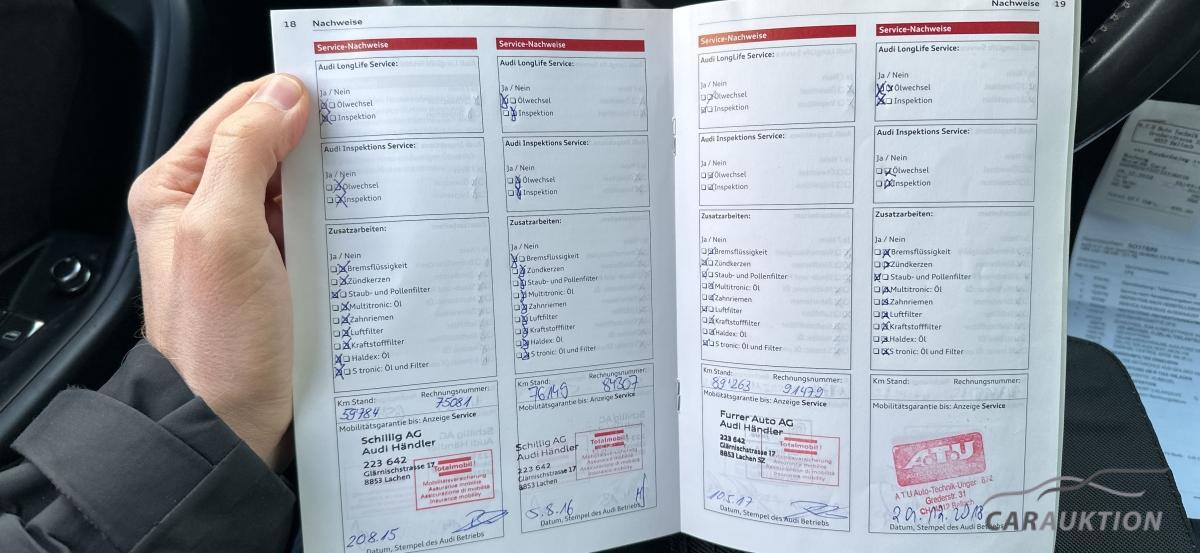 18 Nachweise
Service-Nachweise
Audi LongLife Service:
Ja / Nein
Ölwechsel
Inspektion
Audi Inspektions Service:
Ja / Nein
Ölwechsel
Inspektion
Zusatzarbeiten:
Ja / Nein
Bremsflüssigkeit
Zündkerzen
Staub- und Pollenfilter
Multitronic: Öl
Zahnriemen
Luftfilter
Kraftstofffilter
Haldex: Öl
S tronic: Öl und Filter
Km Stand: Rechnungsnummer:
59784 75081
Mobilitätsgarantie bis: Anzeige Service
Schillig AG
Audi Händler
223 642
Glärnischstrasse 17
8853 Lachen
Totalmobil!
Mobilitätsversicherung
Assurance mobilité
Assicurazione di mobilità
Insurance mobility
20.8.15
Datum, Stempel des Audi Betriebs
Service-Nachweise
Audi LongLife Service:
Ja / Nein
Ölwechsel
Inspektion
Audi Inspektions Service:
Ja / Nein
Ölwechsel
Inspektion
Zusatzarbeiten:
Ja / Nein
Bremsflüssigkeit
Zündkerzen
Staub- und Pollenfilter
Multitronic: Öl
Zahnriemen
Luftfilter
Kraftstofffilter
Haldex: Öl
S tronic: Öl und Filter
Km Stand: Rechnungsnummer:
76149 84307
Mobilitätsgarantie bis: Anzeige Service
Schillig AG
Audi Händler
223 642
Glärnischstrasse 17
8853 Lachen
Totalmobil!
Mobilitätsversicherung
Assurance mobilité
Assicurazione di mobilità
Insurance mobility
5.8.16
Datum, Stempel des Audi Betriebs
Nachweise 19
Service-Nachweise
Audi LongLife Service:
Ja / Nein
Ölwechsel
Inspektion
Audi Inspektions Service:
Ja / Nein
Ölwechsel
Inspektion
Zusatzarbeiten:
Ja / Nein
Bremsflüssigkeit
Zündkerzen
Staub- und Pollenfilter
Multitronic: Öl
Zahnriemen
Luftfilter
Kraftstofffilter
Haldex: Öl
S tronic: Öl und Filter
Km Stand: Rechnungsnummer:
89'263 91479
Mobilitätsgarantie bis: Anzeige Service
Furrer Auto AG
Audi Händler
223 642
Glärnischstrasse 17
8853 Lachen SZ
Totalmobil!
Mobilitätsversicherung
Assurance mobilité
Assicurazione di mobilità
Insurance mobility
10.5.17
Datum, Stempel des Audi Betriebs
Service-Nachweise
Audi LongLife Service:
Ja / Nein
Ölwechsel
Inspektion
Audi Inspektions Service:
Ja / Nein
Ölwechsel
Inspektion
Zusatzarbeiten:
Ja / Nein
Bremsflüssigkeit
Zündkerzen
Staub- und Pollenfilter
Multitronic: Öl
Zahnriemen
Luftfilter
Kraftstofffilter
Haldex: Öl
S tronic: Öl und Filter
Km Stand: Rechnungsnummer:
Mobilitätsgarantie bis: Anzeige Service
A.T.U
A T U Auto-Technik-Unger
Grederstr. 31
Datum, Stempel des Audi Betriebs
CARAUKTION